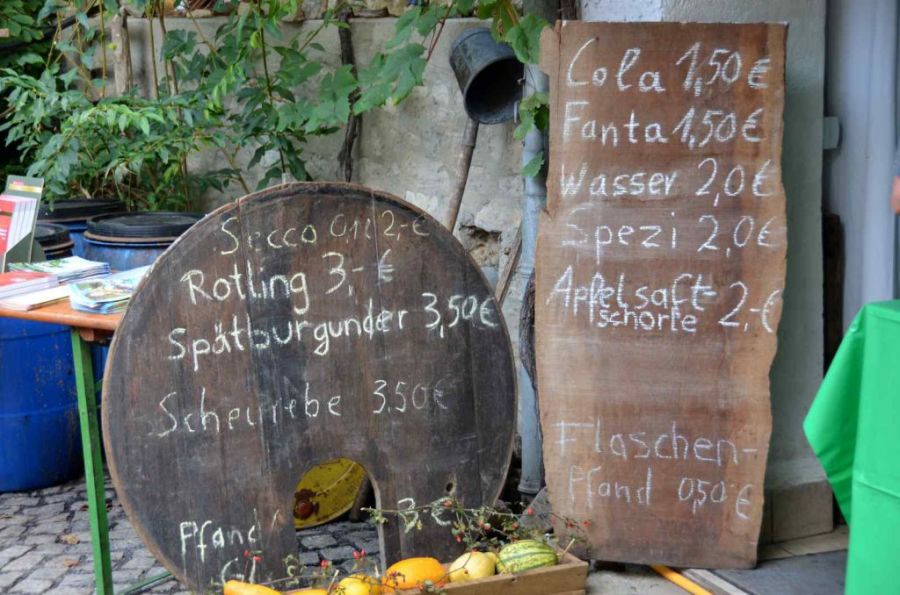 Secco 0,1l 2,- €
Rotling 3,- €
Spätburgunder 3,50€
Scheurebe 3,50€
Pfand 3 €
Cola 1,50€
Fanta 1,50€
Wasser 2,0€
Spezi 2,0€
Apfelsaft-
schorle 2,-€
Flaschen-
Pfand 0,50€